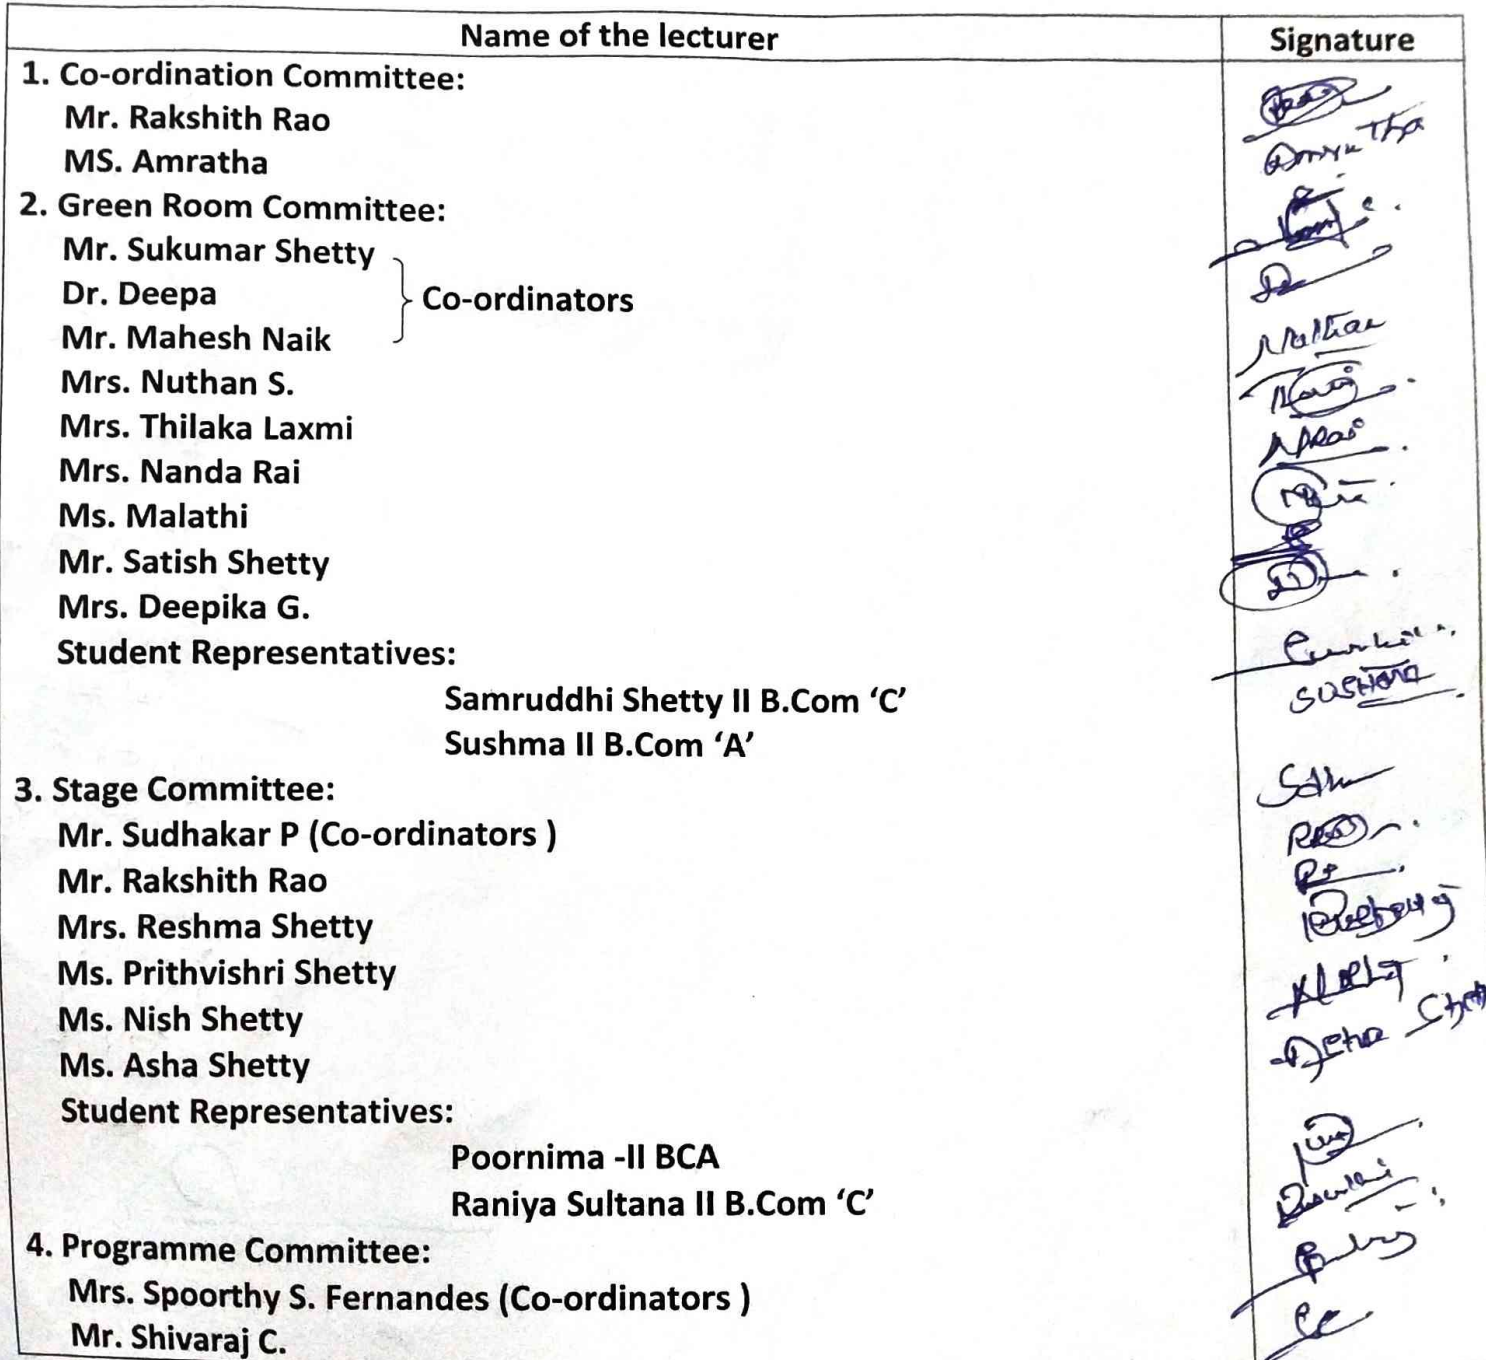 Name of the lecturer Signature
1. Co-ordination Committee:
Mr. Rakshith Rao
MS. Amratha
2. Green Room Committee:
Mr. Sukumar Shetty
Dr. Deepa Co-ordinators
Mr. Mahesh Naik
Mrs. Nuthan S.
Mrs. Thilaka Laxmi
Mrs. Nanda Rai
Ms. Malathi
Mr. Satish Shetty
Mrs. Deepika G.
Student Representatives:
Samruddhi Shetty II B.Com ‘C’
Sushma II B.Com ‘A’
3. Stage Committee:
Mr. Sudhakar P (Co-ordinators )
Mr. Rakshith Rao
Mrs. Reshma Shetty
Ms. Prithvishri Shetty
Ms. Nish Shetty
Ms. Asha Shetty
Student Representatives:
Poornima -II BCA
Raniya Sultana II B.Com ‘C’
4. Programme Committee:
Mrs. Spoorthy S. Fernandes (Co-ordinators )
Mr. Shivaraj C.